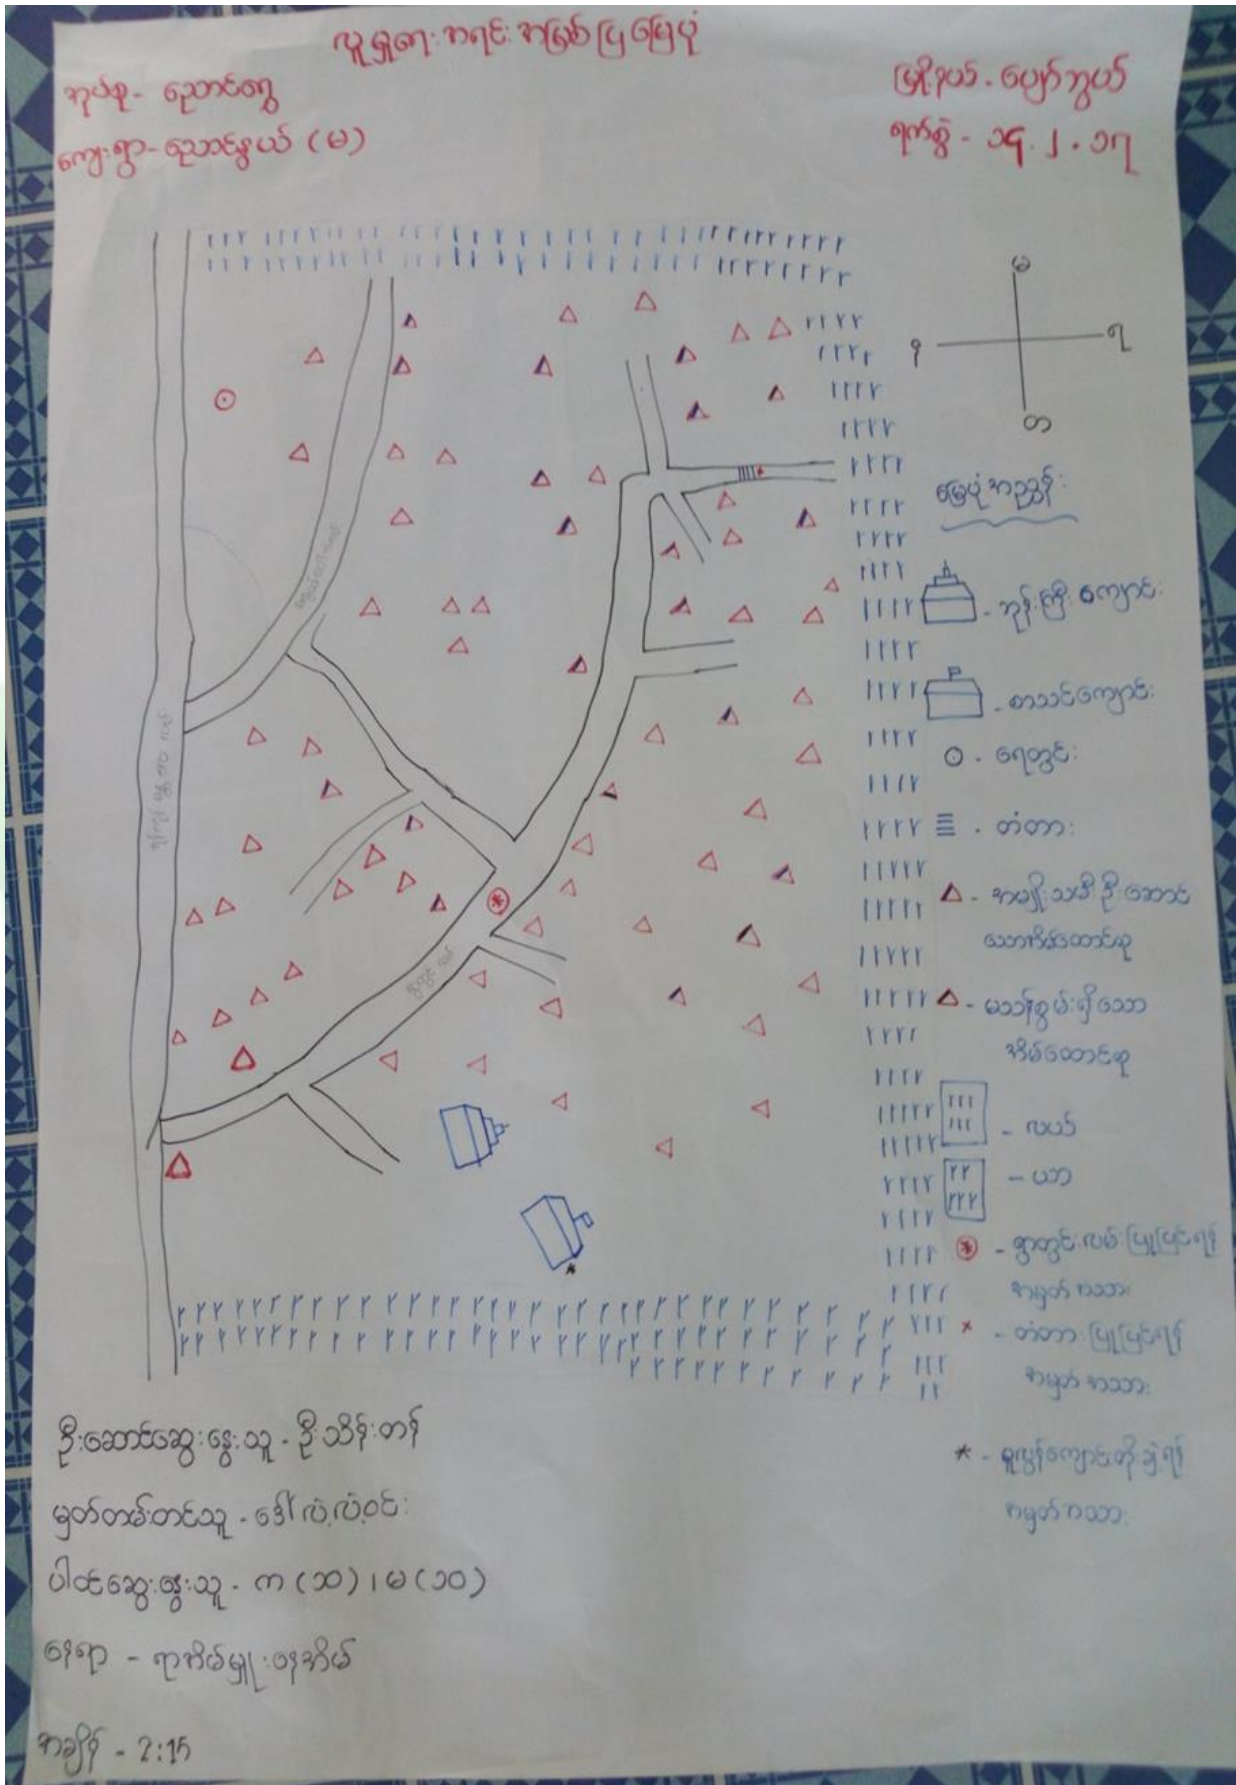 လူမှုရေး အရင်းအမြစ်ပြမြေပုံ
အုပ်စု - ညောင်ရွှေ
မြို့နယ် - ပျော်ဘွယ်
ကျေးရွာ - ညောင်နွယ် (မ)
ရက်စွဲ - ၁၄.၂.၁၇
မ
န
ရ
တ
မြေပုံအညွှန်း
- ဘုန်းကြီးကျောင်း
- စာသင်ကျောင်း
- ရေတွင်း
- တံတား
- အမျိုးသမီးဦးဆောင်
သောအိမ်ထောင်စု
- မသန်စွမ်းရှိသော
အိမ်ထောင်စု
- လယ်
- ယာ
- ရွာတွင်းလမ်းပြုပြင်ရန်
အမှတ်အသား
- တံတားပြုပြင်ရန်
အမှတ်အသား
- မူလွန်ကျောင်းတိုးချဲ့ရန်
အမှတ်အသား
ဦးဆောင်ဆွေးနွေးသူ - ဦးသိန်းတန်
မှတ်တမ်းတင်သူ - ဒေါ်လဲ့လဲ့ဝင်း
ပါဝင်ဆွေးနွေးသူ - က (၁၀) ၊ မ (၁၀)
နေရာ - ရာအိမ်မှူးနေအိမ်
အချိန် - 2:15